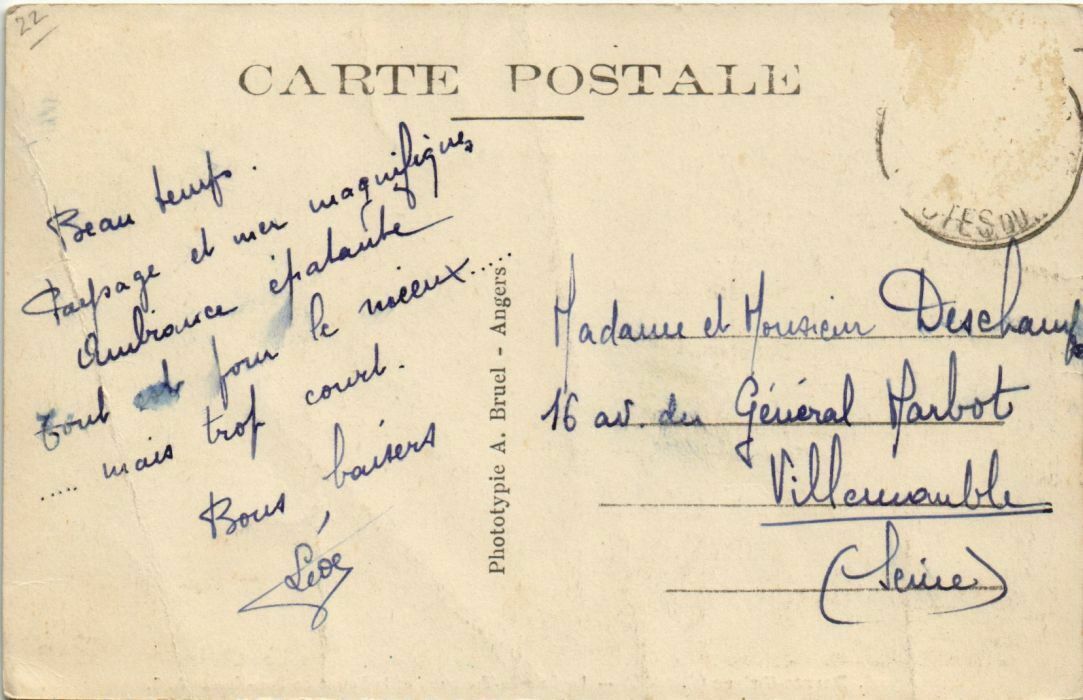 22
CARTE POSTALE
Beau temps.
Paysage et mer magnifiques
Ambiance épatante
tout est pour le mieux.....
..... mais trop court.
Bons baisers
Phototypie A. Bruel - Angers
Madame et Monsieur Deschamps
16 av. du Général Marbot
Villemomble
(Seine)